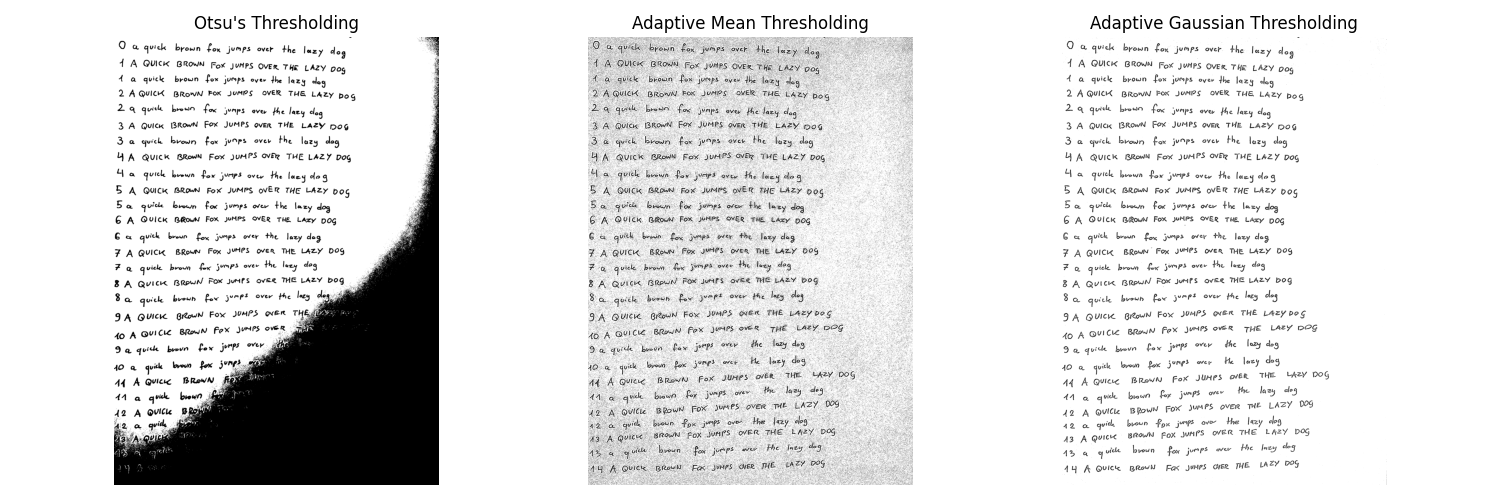 Otsu's Thresholding
0 a quick brown fox jumps over the lazy dog
1 A QUICK BROWN FOX JUMPS OVER THE LAZY DOG
1 a quick brown fox jumps over the lazy dog
2 A QUICK BROWN FOX JUMPS OVER THE LAZY DOG
2 a quick brown fox jumps over the lazy dog
3 A QUICK BROWN FOX JUMPS OVER THE LAZY DOG
3 a quick brown fox jumps over the lazy dog
4 A QUICK BROWN FOX JUMPS OVER THE LAZY DOG
4 a quick brown fox jumps over the lazy dog
5 A QUICK BROWN FOX JUMPS OVER THE LAZY DOG
5 a quick brown fox jumps over the lazy dog
6 A QUICK BROWN FOX JUMPS OVER THE LAZY DOG
6 a quick brown fox jumps over the lazy dog
7 A QUICK BROWN FOX JUMPS OVER THE LAZY DOG
7 a quick brown fox jumps over the lazy dog
8 A QUICK BROWN FOX JUMPS OVER THE LAZY DOG
8 a quick brown fox jumps over the lazy dog
9 A QUICK BROWN FOX JUMPS OVER THE
10 A QUICK BROWN FOX JUMPS OVER
9 a quick brown fox jumps over
10 a quick brown fox jumps
11 A QUICK BROWN FOX
11 a quick brown
12 A QUICK
12 a quick
13 A QUICK
13
14
Adaptive Mean Thresholding
0 a quick brown fox jumps over the lazy dog
1 A QUICK BROWN FOX JUMPS OVER THE LAZY DOG
1 a quick brown fox jumps over the lazy dog
2 A QUICK BROWN FOX JUMPS OVER THE LAZY DOG
2 a quick brown fox jumps over the lazy dog
3 A QUICK BROWN FOX JUMPS OVER THE LAZY DOG
3 a quick brown fox jumps over the lazy dog
4 A QUICK BROWN FOX JUMPS OVER THE LAZY DOG
4 a quick brown fox jumps over the lazy dog
5 A QUICK BROWN FOX JUMPS OVER THE LAZY DOG
5 a quick brown fox jumps over the lazy dog
6 A QUICK BROWN FOX JUMPS OVER THE LAZY DOG
6 a quick brown fox jumps over the lazy dog
7 A QUICK BROWN FOX JUMPS OVER THE LAZY DOG
7 a quick brown fox jumps over the lazy dog
8 A QUICK BROWN FOX JUMPS OVER THE LAZY DOG
8 a quick brown fox jumps over the lazy dog
9 A QUICK BROWN FOX JUMPS OVER THE LAZY DOG
10 A QUICK BROWN FOX JUMPS OVER THE LAZY DOG
9 a quick brown fox jumps over the lazy dog
10 a quick brown fox jumps over the lazy dog
11 A QUICK BROWN FOX JUMPS OVER THE LAZY DOG
11 a quick brown fox jumps over the lazy dog
12 A QUICK BROWN FOX JUMPS OVER THE LAZY DOG
12 a quick brown fox jumps over the lazy dog
13 A QUICK BROWN FOX JUMPS OVER THE LAZY DOG
13 a quick brown fox jumps over the lazy dog
14 A QUICK BROWN FOX JUMPS OVER THE LAZY DOG
Adaptive Gaussian Thresholding
0 a quick brown fox jumps over the lazy dog
1 A QUICK BROWN FOX JUMPS OVER THE LAZY DOG
1 a quick brown fox jumps over the lazy dog
2 A QUICK BROWN FOX JUMPS OVER THE LAZY DOG
2 a quick brown fox jumps over the lazy dog
3 A QUICK BROWN FOX JUMPS OVER THE LAZY DOG
3 a quick brown fox jumps over the lazy dog
4 A QUICK BROWN FOX JUMPS OVER THE LAZY DOG
4 a quick brown fox jumps over the lazy dog
5 A QUICK BROWN FOX JUMPS OVER THE LAZY DOG
5 a quick brown fox jumps over the lazy dog
6 A QUICK BROWN FOX JUMPS OVER THE LAZY DOG
6 a quick brown fox jumps over the lazy dog
7 A QUICK BROWN FOX JUMPS OVER THE LAZY DOG
7 a quick brown fox jumps over the lazy dog
8 A QUICK BROWN FOX JUMPS OVER THE LAZY DOG
8 a quick brown fox jumps over the lazy dog
9 A QUICK BROWN FOX JUMPS OVER THE LAZY DOG
10 A QUICK BROWN FOX JUMPS OVER THE LAZY DOG
9 a quick brown fox jumps over the lazy dog
10 a quick brown fox jumps over the lazy dog
11 A QUICK BROWN FOX JUMPS OVER THE LAZY DOG
11 a quick brown fox jumps over the lazy dog
12 A QUICK BROWN FOX JUMPS OVER THE LAZY DOG
12 a quick brown fox jumps over the lazy dog
13 A QUICK BROWN FOX JUMPS OVER THE LAZY DOG
13 a quick brown fox jumps over the lazy dog
14 A QUICK BROWN FOX JUMPS OVER THE LAZY DOG